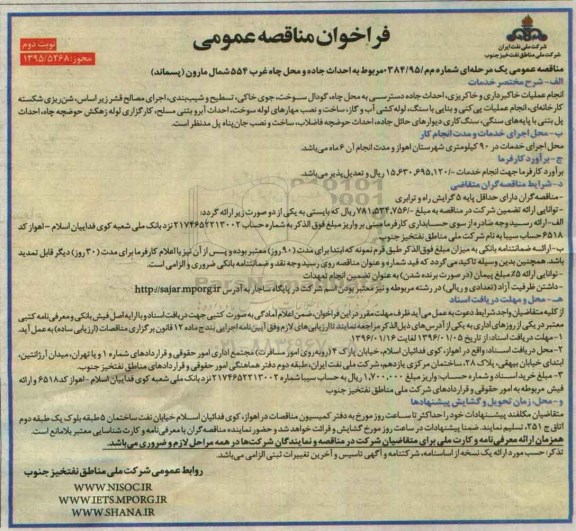 شرکت ملی نفت ایران
شرکت ملی مناطق نفتخیز جنوب
فراخوان مناقصه عمومی
نوبت دوم
مجوز: ۱۳۹۵/۵۲۶۸
مناقصه عمومی یک مرحله‌ای شماره م‌م/۳۸۴/۹۵-مربوط به احداث جاده و محل چاه غرب ۵۵۴ شمال مارون (پسماند)
الف- شرح مختصر خدمات
انجام عملیات خاکبرداری و خاکریزی، احداث جاده دسترسی به محل چاه، گودال سوخت، جوی خاکی، تسطیح و شیب‌بندی، اجرای مصالح قشر زیر اساس، شن‌ریزی شکسته
کارخانه‌ای، انجام عملیات پی کنی و بنایی با سنگ، لوله کشی آب و گاز، ساخت و نصب مهارهای لوله سوخت، احداث آبرو بتنی مسلح، کارگزاری لوله زهکش حوضچه چاه، احداث
پل بتنی با پایه‌های سنگی، سنگ کاری دیوارهای حائل جاده، احداث حوضچه فاضلاب، ساخت و نصب جان پناه پل مدنظر است.
ب- محل اجرای خدمات و مدت انجام کار
محل اجرای خدمات در ۹۰ کیلومتری شهرستان اهواز و مدت انجام آن ۶ ماه می‌باشد.
ج- برآورد کارفرما
برآورد کارفرما جهت انجام خدمات -/۱۵,۶۳۰,۶۹۵,۱۲۰ ریال و تعدیل‌پذیر می‌باشد.
د- شرایط مناقصه‌گران متقاضی
- مناقصه گران دارای حداقل پایه ۵ گرایش راه و ترابری
- توانایی ارائه تضمین شرکت در مناقصه به مبلغ -/۷۸۱,۵۳۴,۷۵۶ ریال که بایستی به یکی از دو صورت زیر ارائه گردد:
الف-ارائه رسید وجه صادره از سوی حسابداری کارفرما مبنی بر واریز مبلغ فوق الذکر به شماره حساب ۲۱۷۴۶۵۲۲۱۳۰۰۲ نزد بانک ملی شعبه کوی فداییان اسلام - اهواز کد
۶۵۱۸ حساب سیبا به نام شرکت ملی مناطق نفتخیز جنوب
ب- ارائه ضمانتنامه بانکی به میزان مبلغ فوق الذکر طبق فرم نمونه که ابتدا برای مدت (۹۰ روز) معتبر بوده و پس از آن نیز با اعلام کارفرما برای مدت (۳۰ روز) دیگر قابل تمدید
باشد. همچنین بدین وسیله تاکید می‌گردد که قید شماره و عنوان مناقصه روی رسید وجه نقد و ضمانتنامه بانکی ضروری و الزامی است.
- توانایی ارائه ۵٪ مبلغ پیمان (در صورت برنده شدن) به عنوان تضمین انجام تعهدات
- داشتن ظرفیت آزاد (تعدادی و ریالی) در رشته مربوطه و نیز معتبر بودن اسم شرکت در پایگاه ساجار به آدرس http://sajar.mporg.ir
هـ- محل و مهلت دریافت اسناد
از کلیه متقاضیان واجد شرایط دعوت به عمل می‌آید ظرف مهلت مقرر در این فراخوان، ضمن اعلام آمادگی به صورت کتبی جهت دریافت اسناد و با ارایه اصل فیش بانکی و معرفی‌نامه کتبی
معتبر در یکی از روزهای اداری به یکی از آدرس‌های ذیل الذکر مراجعه نمایند تا ارزیابی‌های لازم وفق آیین‌نامه اجرایی بند ج ماده ۱۲ قانون برگزاری مناقصات (ارزیابی ساده) به عمل آید.
۱- مهلت دریافت اسناد: از تاریخ ۱۳۹۶/۰۱/۰۵ لغایت ۱۳۹۶/۰۱/۱۶
۲- محل دریافت اسناد: واقع در اهواز، کوی فدائیان اسلام، خیابان پارک ۲ (روبه‌روی امور مسافرت) مجتمع اداری امور حقوقی و قراردادهای شماره ۱ و یا تهران، میدان آرژانتین،
ابتدای خیابان بیهقی، پلاک ۲۸، ساختمان مرکزی یازدهم، شرکت ملی نفت ایران، طبقه دوم دفتر هماهنگی امور حقوقی و قراردادهای مناطق نفتخیز جنوب.
۳- مبلغ خرید اسناد و شماره حساب: واریز مبلغ ۱,۷۰۰,۰۰۰ ریال به حساب سیبا شماره ۲۱۷۴۶۵۲۲۱۳۰۰۲ نزد بانک ملی شعبه کوی فداییان اسلام - اهواز کد ۶۵۱۸ و ارائه
فیش مربوطه به امور حقوقی و قراردادهای شرکت ملی مناطق نفتخیز جنوب
و- محل، زمان تحویل و گشایش پیشنهادها
متقاضیان مکلفند پیشنهادات خود را حداکثر تا ساعت روز مورخ به دفتر کمیسیون مناقصات در اهواز، کوی فدائیان اسلام خیابان نفت ساختمان ۵ طبقه بلوک یک طبقه دوم
اتاق ج ۲۵۱، تسلیم نمایند. ضمنا پیشنهادات در ساعت روز مورخ گشایش و قرائت خواهد شد و حضور نماینده مناقصه گران با معرفی‌نامه و کارت شناسایی معتبر بلامانع است.
همزمان ارائه معرفی‌نامه و کارت ملی برای متقاضیان شرکت در مناقصه و نمایندگان شرکت‌ها در همه مراحل لازم و ضروری می‌باشد.
تذکر: حسب مورد ارائه یک نسخه از اساسنامه، شرکتنامه و آگهی تاسیس و آخرین تغییرات ثبتی الزامی می‌باشد.
روابط عمومی شرکت ملی مناطق نفتخیز جنوب
WWW.NISOC.IR
WWW.IETS.MPORG.IR
WWW.SHANA.IR